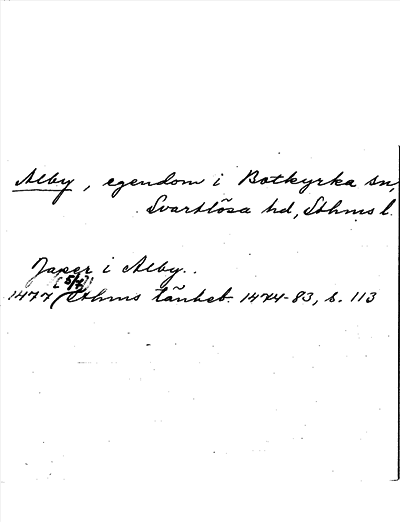 Alby, egendom i Botkyrka sn,
Svartlösa hd, Sthms l.
Japer i Alby.
[5/7]
1477 (Sthms tänkeb. 1474-83, s. 113